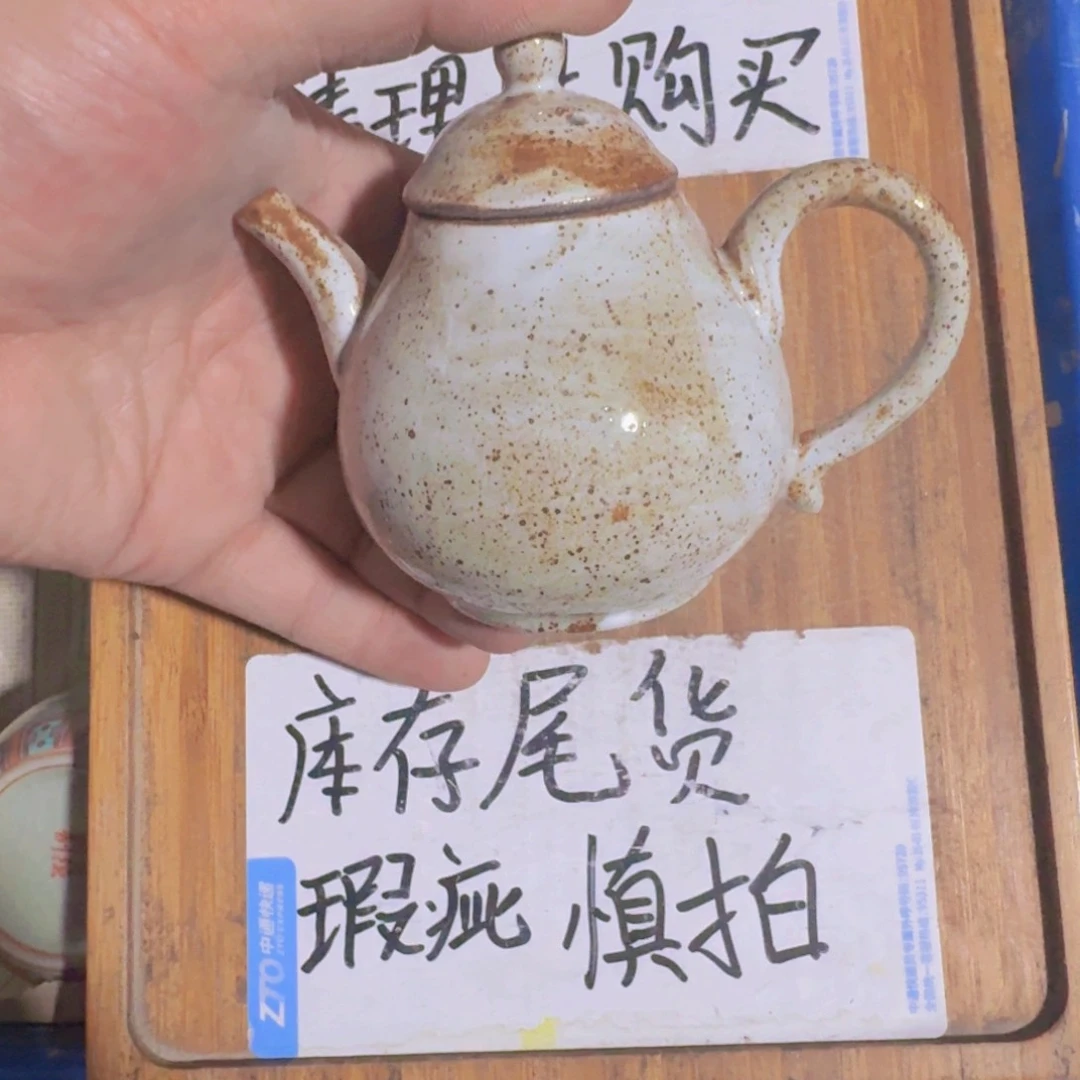 清理 购买
库存尾货
瑕疵 慎拍
ZTO 中通快递
ZTO EXPRESS